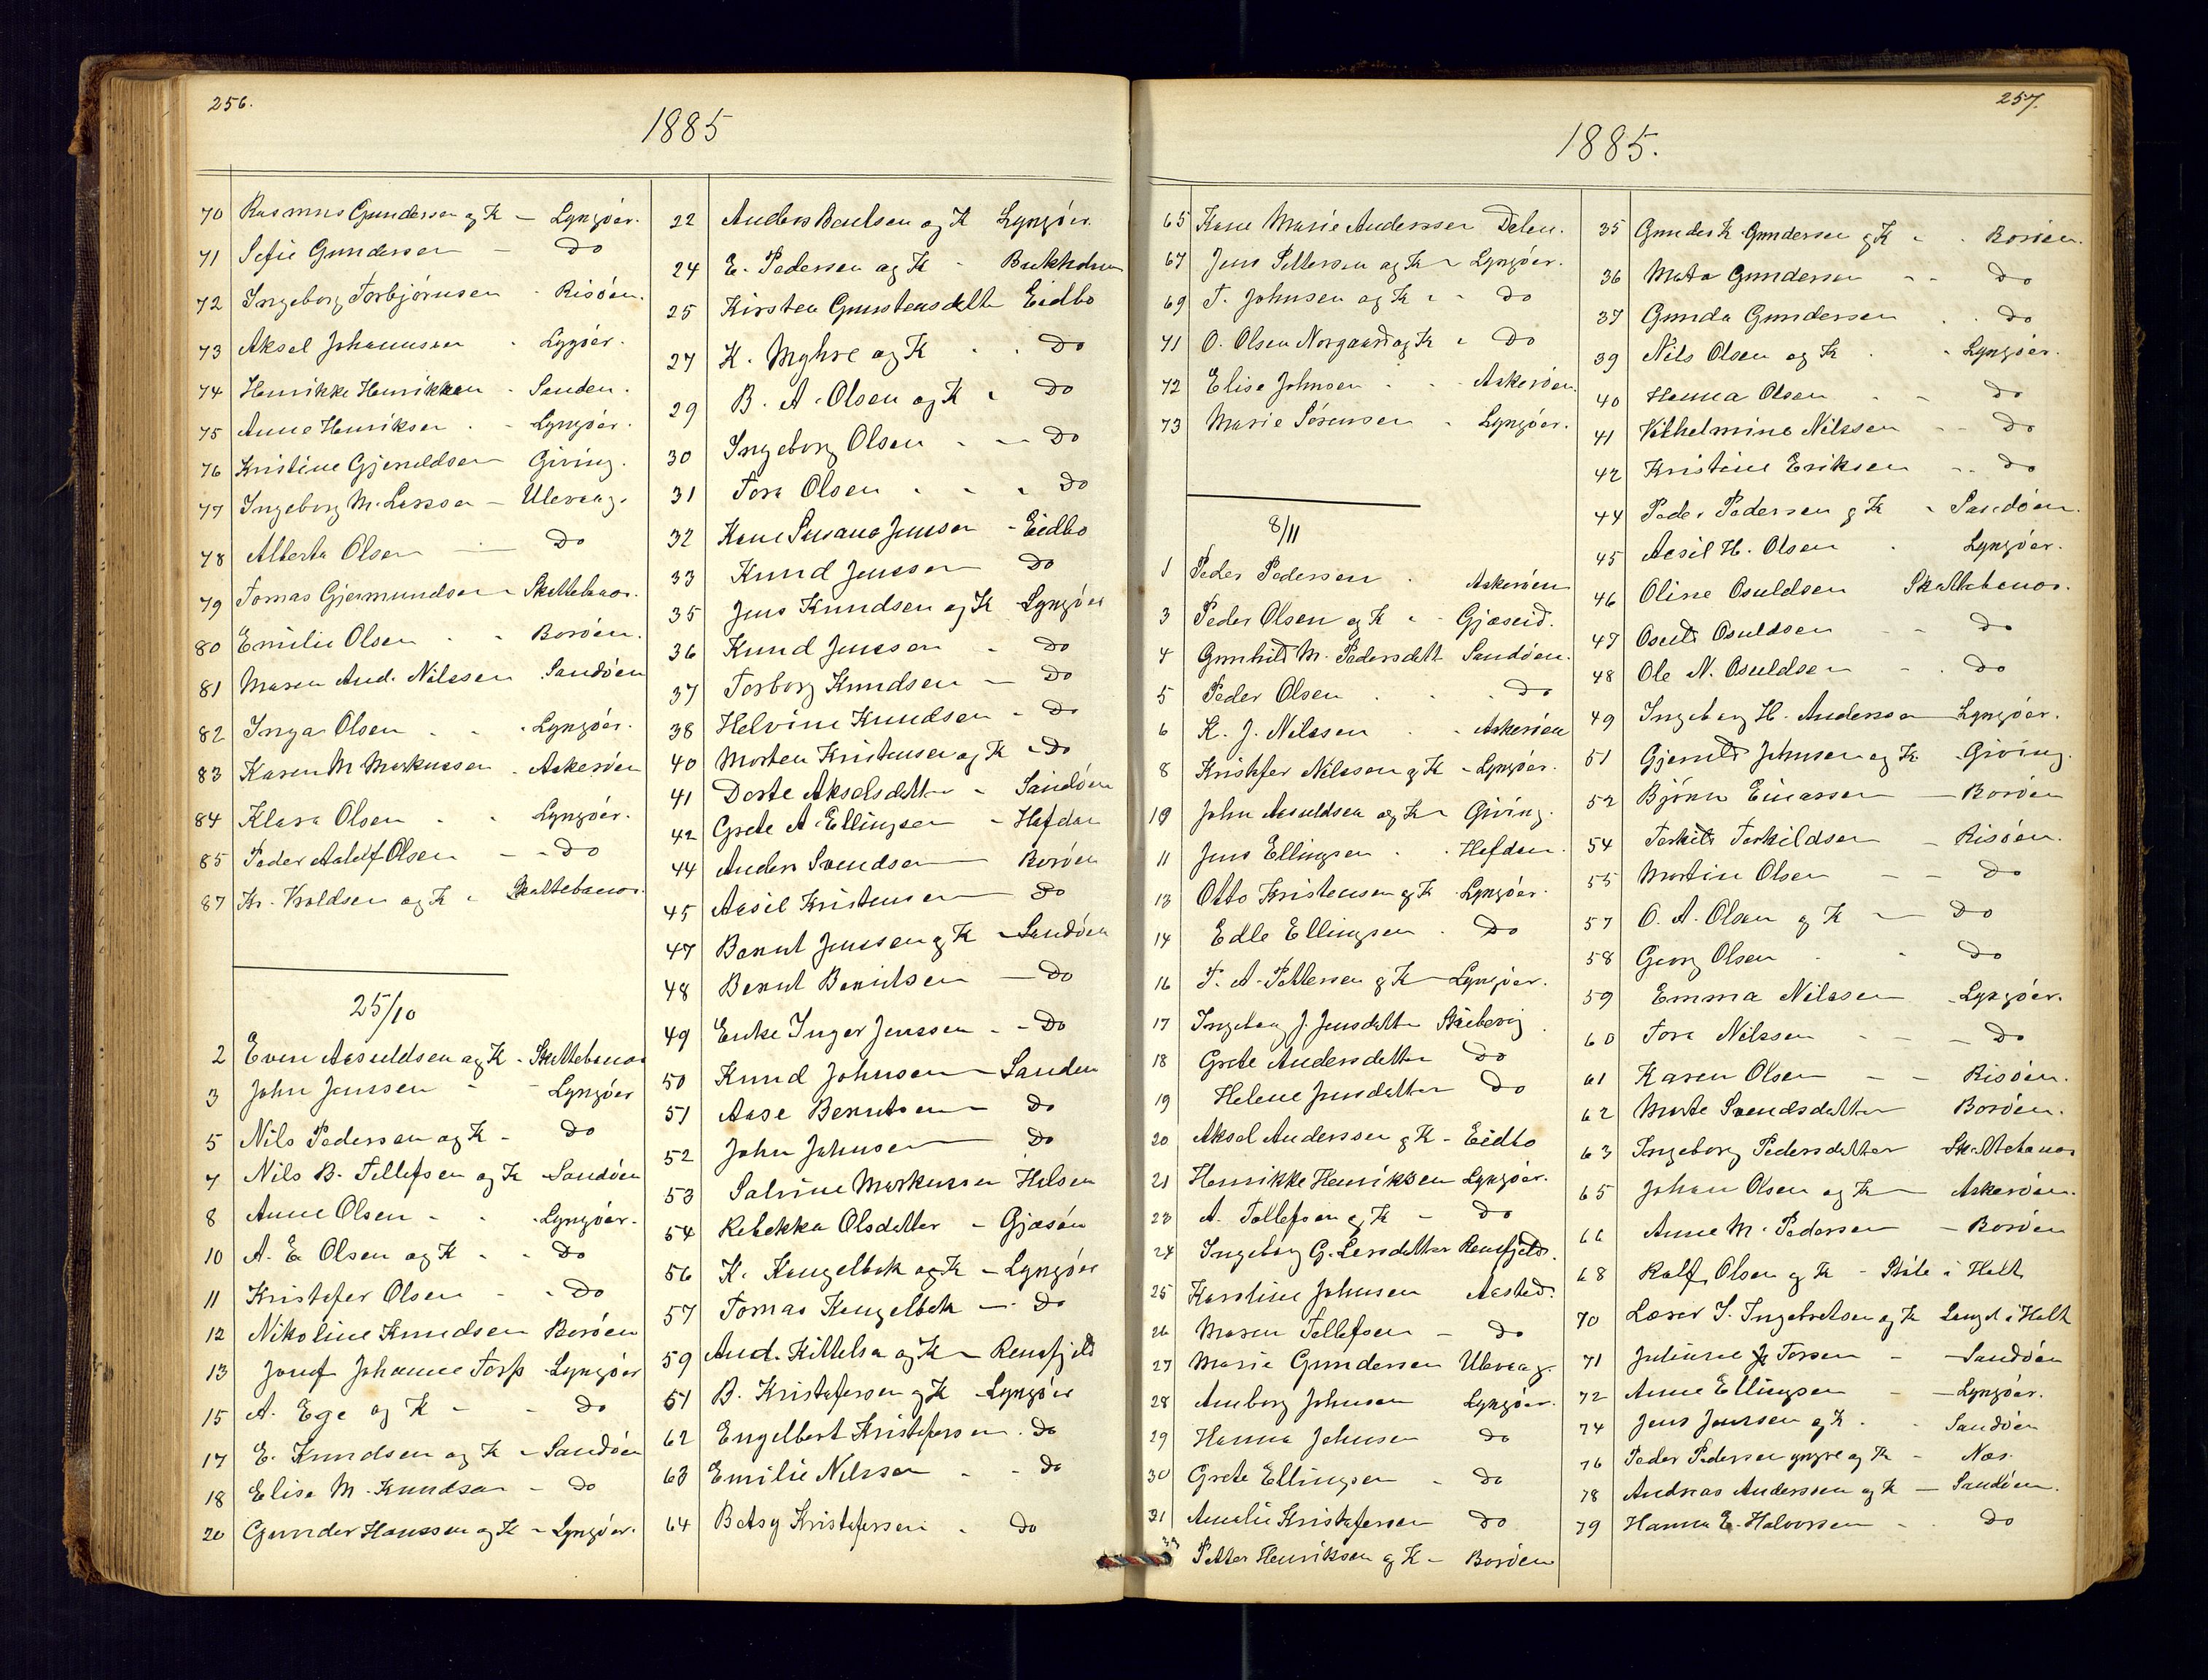 256.
1885
70 Rasmus Gundersen og K — Lyngöer.
71 Sefie Gundersen — Do
72 Ingeborg Torbjörnsen - Risöen.
73 Aksel Johannesen - Lygöer.
74 Henrikke Henriksen - Sanden.
75 Anne Henriksen - Lyngöer.
76 Kristine Gjeruldsen Giving.
77 Ingeborg M. Larssen — Ulevaag.
78 Alberta Olsen — Do
79 Tomas Gjermundsen - Skuttebaas.
80 Emilie Olsen - Boröen.
81 Maren And. Nilssen Sandöen
82 Inga Olsen - Lyngöer.
83 Karen M Markussen - Askeröen
84 Klara Olsen - Lyngöer.
85 Peder Adolf Olsen — Do
87 Kr. Kroldsen og K - Skuttebaas.
25/10
2 Even Aasuldsen og K - Skuttebaas
3 John Jenssen - Lyngöer
5 Nils Pedersen og K - Do
7 Nils B. Tellefsen og K - Sandöen
8 Anne Olsen - Lyngöer.
10 A. E Olsen og K - Do
11 Kristofer Olsen - Do
12 Nikoline Knudsen Boröen
13 Josef Johanne Torp Lyngöer
15 A. Ege og K - Do
17 E. Knudsen og K - Sandöen
18 Elise M. Knudsen - Do
20 Gunder Hanssen og K - Lyngöer.
22 Anders Baulsen og K Lyngöer.
24 E. Pedersen og K - Bukholmen
25 Kirsten Gunstensdatter Eidbo
27 K. Myhre og K - Do
29 B. A. Olsen og K - Do
30 Ingeborg Olsen - Do
31 Tora Olsen - Do
32 Kane Susane Jensen - Eidbo
33 Knud Jenssen Do
35 Jens Knudsen og K Lyngöer
36 Knud Jenssen - Do
37 Torborg Knudsen - Do
38 Helvine Knudsen - Do
40 Morten Kristensen og K - Do
41 Dorte Akselsdatter - Sandöen
42 Grete A. Ellingsen - Hafdan
44 Anders Svendsen Boröen
45 Aasil Kristensen Do
47 Berut Jenssen og K - Sandöen
48 Berut Berutsen — Do
49 Enke Inger Jenssen - Do
50 Knud Johnsen - Sanden
51 Aase Berutsen - Do
52 John Johnsen Do
53 Salvine Markussen Holsen
54 Rebekka Olsdatter - Gjæsöen
56 K. Kengelbek og K - Lyngöer
57 Tomas Kengelbek — Do
59 And. Kittelsen og K - Rensfjeld
61 B. Kristofersen og K - Lyngöer
62 Engelbert Kristofersen. Do
63 Emilie Nilssen - Do
64 Betsy Kristofersen - Do
257.
1885.
65 Kane Marie Anderssen Delen.
67 Jens Pettersen og K - Lyngöer.
69 T. Johnsen og K - Do
71 O. Olsen Norgaard og K - Do
72 Elise Johnsen - Askeröen.
73 Marie Sörensen - Lyngöer.
8/11
1 Peder Pedersen - Askeröen
3 Peder Olsen og K - Gjæseid.
4 Gunhild M. Pedersdatt Sandöen.
5 Peder Olsen - Do
6 K. J. Nilssen - Askeröen
8 Kristofer Nilssen og K - Lyngöer.
10 John Aasuldsen og K - Giving.
11 Jens Ellingsen - Hefden.
13 Otto Kristensen og K Lyngöer.
14 Edle Ellingsen - Do
16 T. A. Pettersen og K - Lyngöer.
17 Ingeborg J. Jensdatter
18 Grete Andersdatter Do
19 Helene Jensdatter Do
20 Aksel Anderssen og K - Eidbo
21 Henrikke Henriksen Lyngöer.
23 A. Tollefsen og K - Do
24 Ingeborg G. Larsdatter Rensfjeld.
25 Karoline Johnsen Aasted.
26 Maren Tellefsen - Do
27 Marie Gundersen Ulevaag.
28 Anborg Johnsen Lyngöer.
29 Hanna Johnsen Do
30 Grete Ellingsen - Do
31 Amalie Kristofersen Do
33 Petter Henriksen og K - Boröen
35 Gunder K. Gundersen og K - Boröen.
36 Mata Gundersen - Do
37 Gunda Gundersen - Do
39 Nils Olsen og K - Lyngöer.
40 Hanna Olsen - Do
41 Vilhelmine Nilssen - Do
42 Kristine Eriksen - Do
44 Peder Pedersen og K - Sandöen.
45 Aasil H. Olsen - Lyngöer.
46 Oline Osuldsen Skuttebaas.
47 Osuld Osuldsen - Do
48 Ole N. Osuldsen - Do
49 Ingeborg H. Anderssen Lyngöer.
51 Gjeruld Johnsen og K - Giving.
52 Björn Einarsen — Boröen
54 Torkild Torkildsen - Risöen.
55 Martin Olsen - Do
57 O. A. Olsen og K — Do
58 Georg Olsen - Do
59 Emma Nilssen - Lyngöer.
60 Tora Nilssen - Do
61 Karen Olsen - Risöen.
62 Marte Svendsdatter Boröen.
63 Ingeborg Pedersdatter Skuttebaas
65 Johan Olsen og K — Askeröen.
66 Anne M. Pedersen - Boröen
68 Ralf Olsen og K - i Holt
70 Læser S. Ingebretsen og K Langet i Holt
71 Juliane Torsen - Sandöen
72 Anne Ellingsen - Lyngöer.
74 Jens Jenssen og K - Sandöen
76 Peder Pedersen yngre og K - Næs.
78 Andreas Anderssen og K — Sandöen.
79 Hanna E. Halvorsen - Do